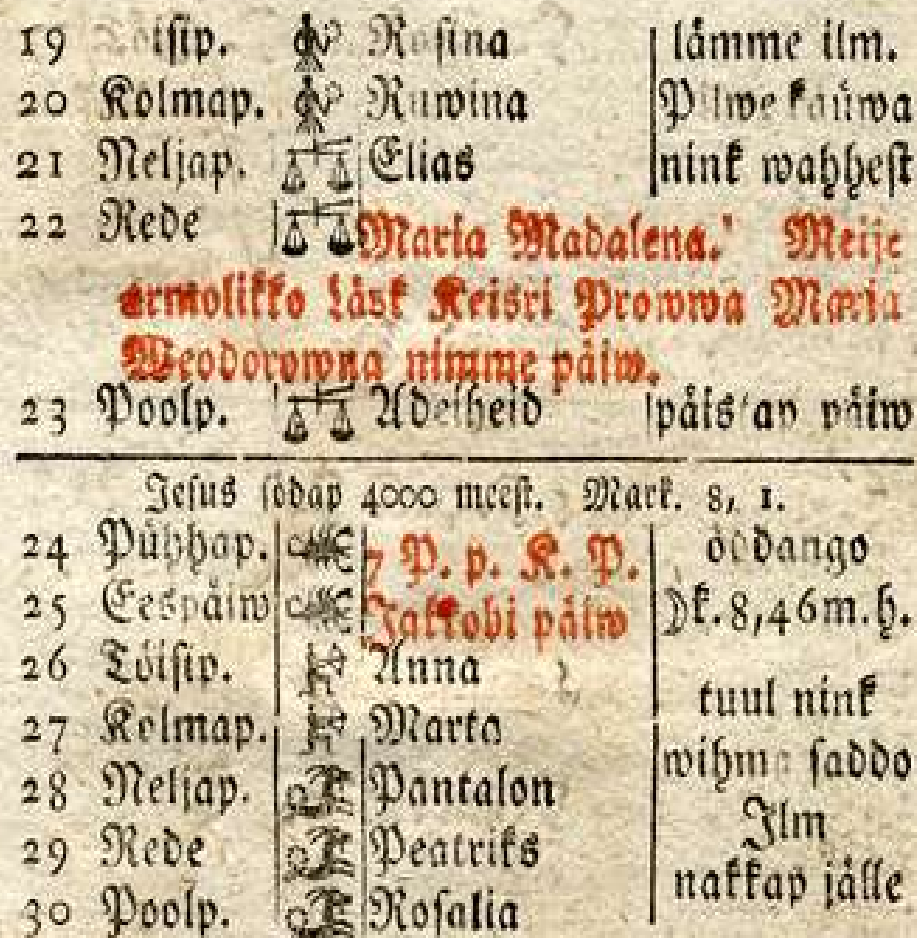 19 Töisip. Rosina lämme ilm.
20 Kolmap. Ruwina Pilwe kauwa
21 Neljap. Elias nink wahhest
22 Rede Maria Madalena. Meije
armolikko Läsk Keisri Prowwa Maria
Weodorowna nimme päiw.
23 Poolp. Adelheid päiw
Jesus södap 4000 meest. Mark. 8, 1.
24 Pühhap. 7 P. p. K. P. öödango
25 Eespäiw Jakkobi päiw k. 8,46m.h.
26 Töisip. Anna
27 Kolmap. Marta tuul nink
28 Neljap. Pantalon wihma saddo
29 Rede Peatriks Ilm
30 Poolp. Rosalia nakkap jälle